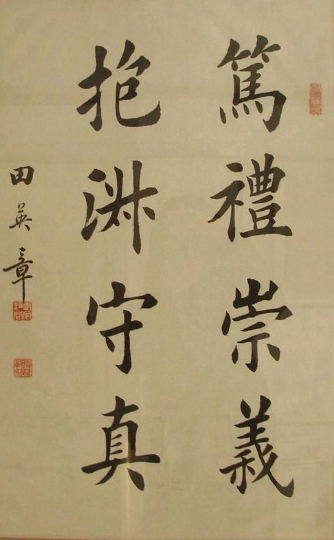 篤禮崇義
抱淵守真
田英章